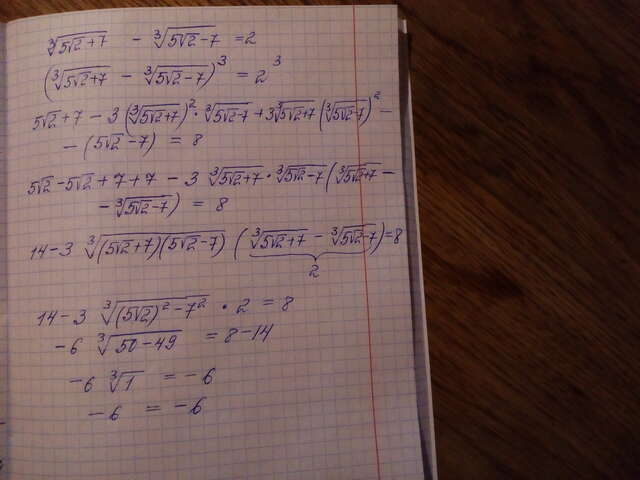 ∛(5√2+7) - ∛(5√2-7) = 2
(∛(5√2+7) - ∛(5√2-7))³ = 2³
5√2+7 - 3(∛(5√2+7))² · ∛(5√2-7) + 3∛(5√2+7) (∛(5√2-7))² -
- (5√2-7) = 8
5√2-5√2+7+7-3 ∛(5√2+7) · ∛(5√2-7) (∛(5√2+7) -
- ∛(5√2-7)) = 8
14-3 ∛((5√2+7)(5√2-7)) (∛(5√2+7) - ∛(5√2-7)) = 8
2
14-3 ∛((5√2)²-7²) · 2 = 8
-6 ∛(50-49) = 8-14
-6 ∛1 = -6
-6 = -6